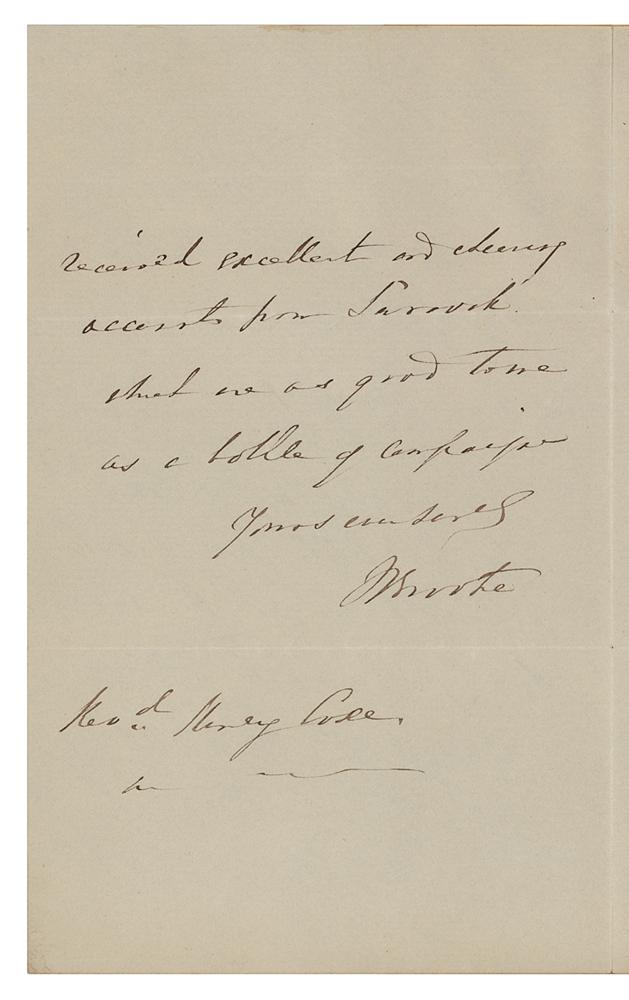 received excellent and cheering
accounts from Sarawak.
which are as good tone
as a bottle of campaign
Yours ever sincerely
JBrooke
Revd Henry Coxe.